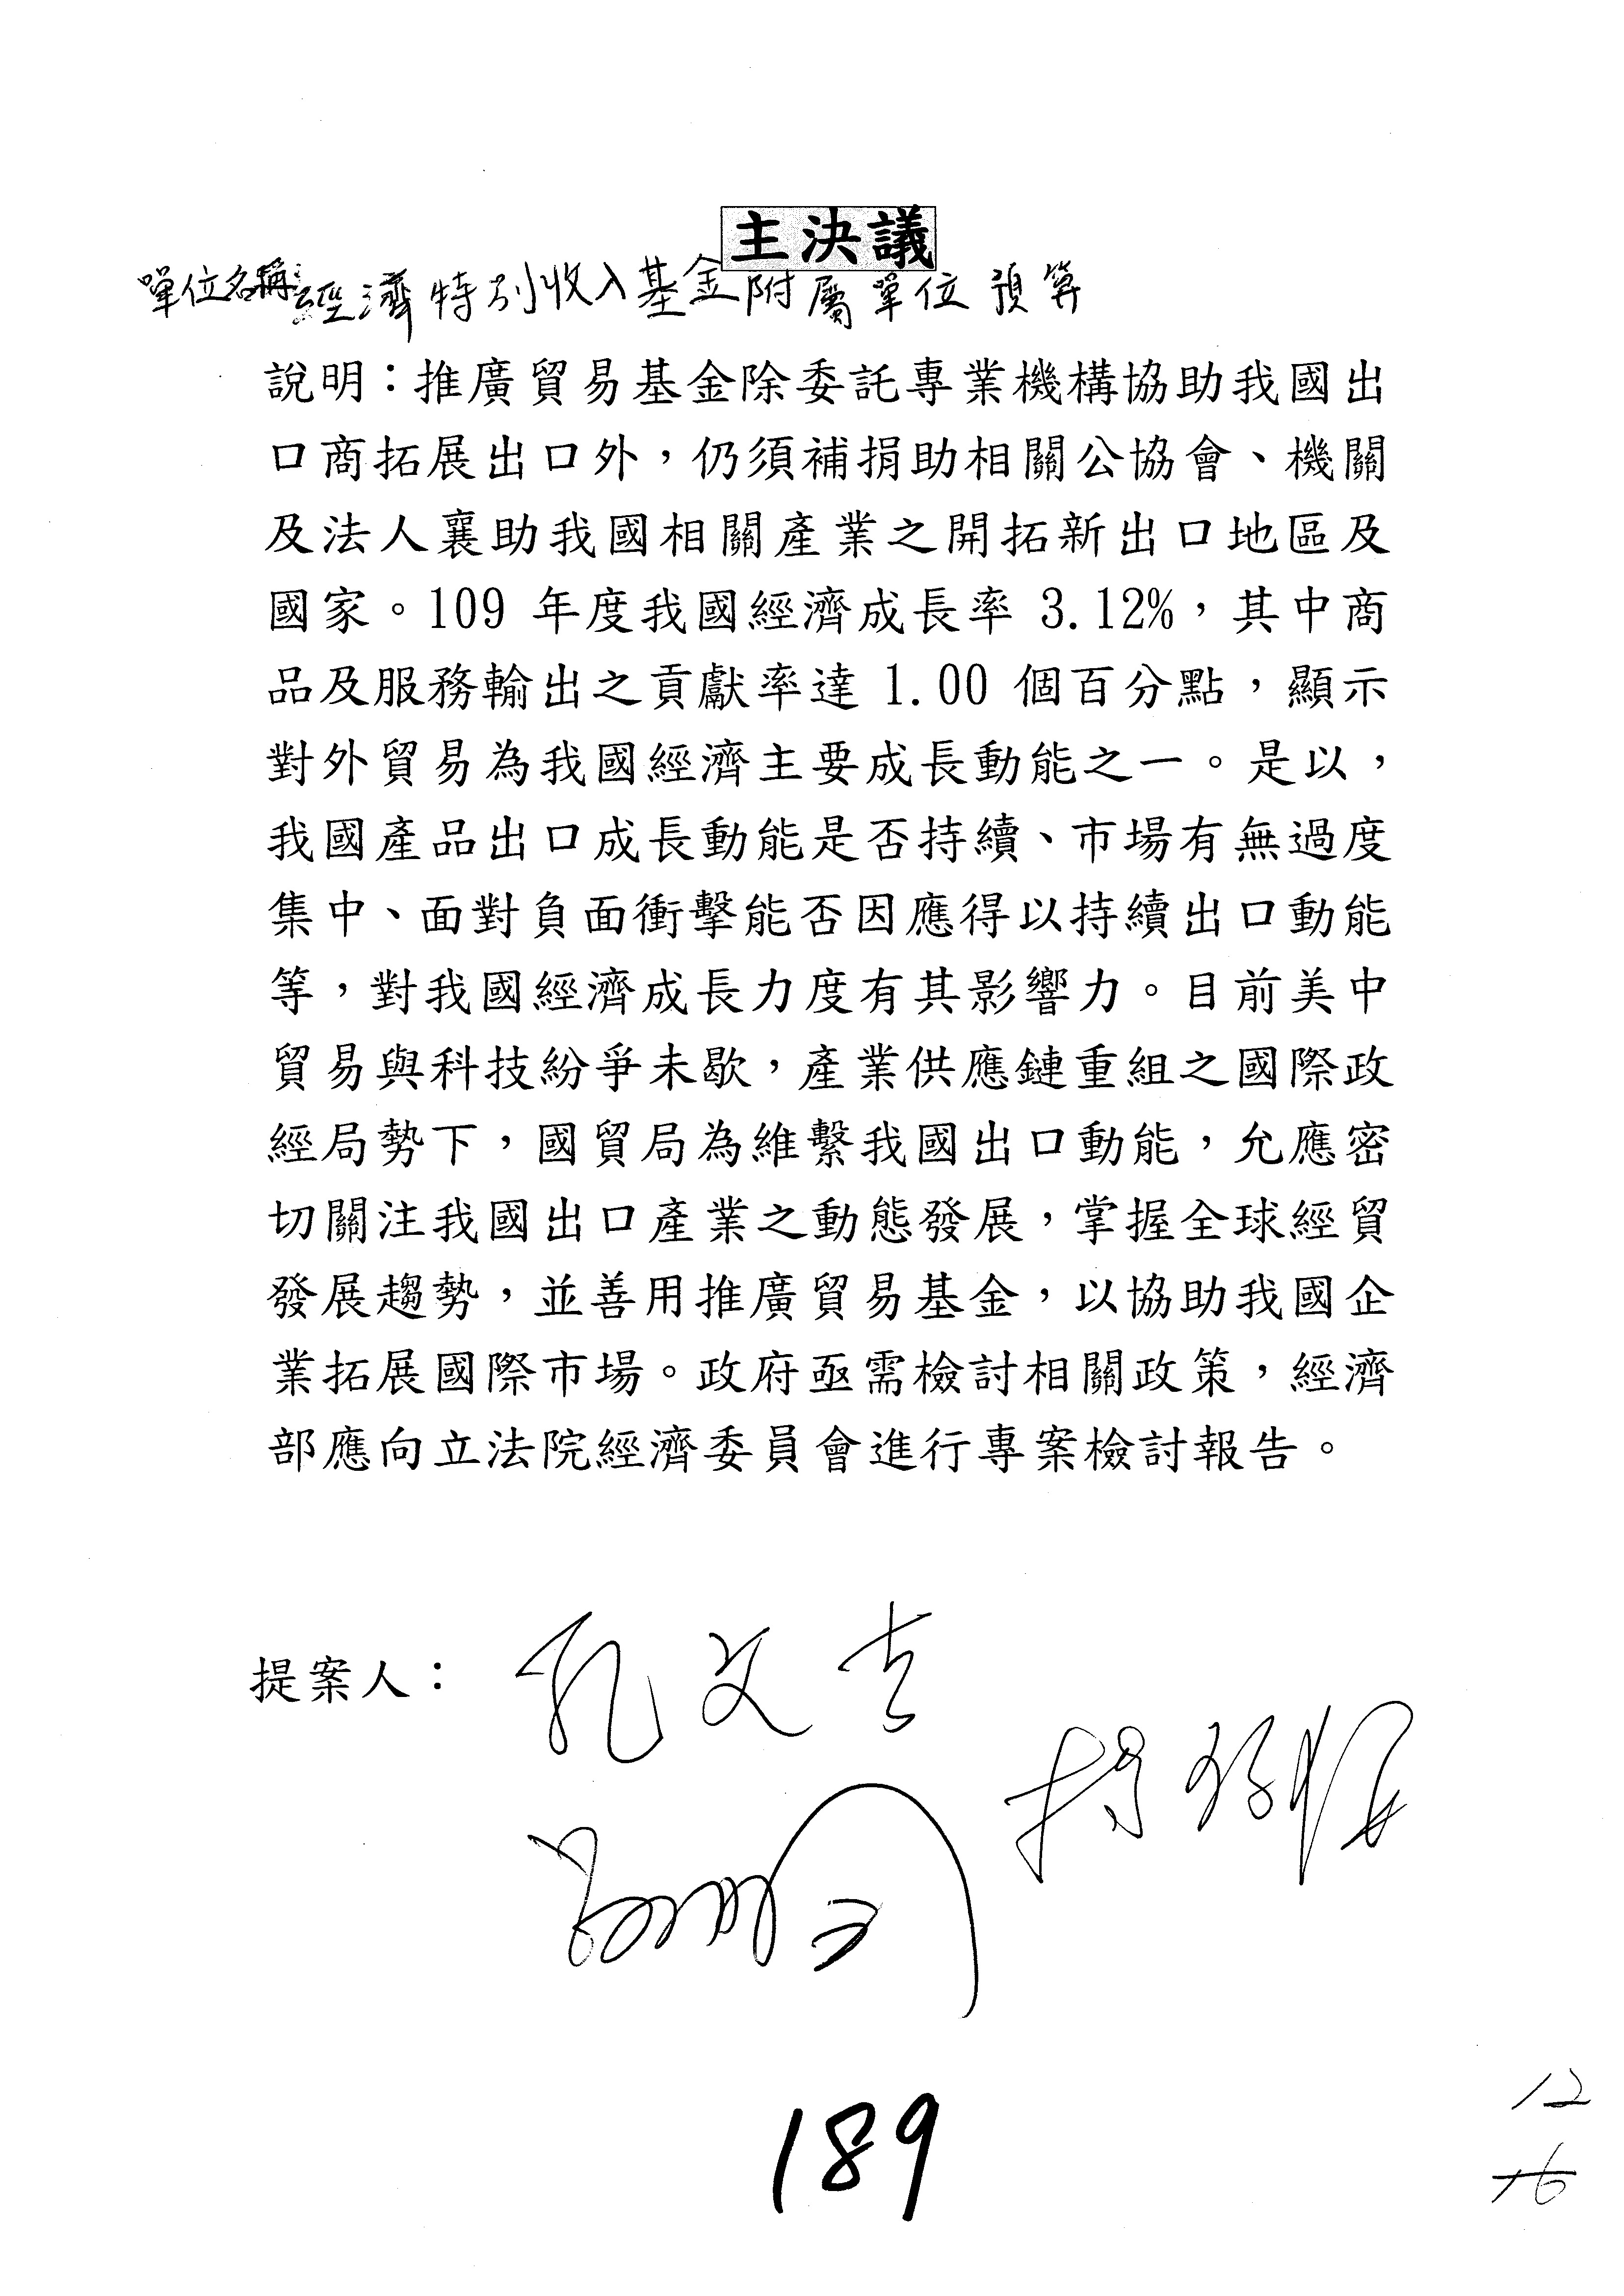 主決議
單位名稱：經濟特別收入基金附屬單位預算
說明：推廣貿易基金除委託專業機構協助我國出
口商拓展出口外，仍須補捐助相關公協會、機關
及法人襄助我國相關產業之開拓新出口地區及
國家。109 年度我國經濟成長率 3.12%，其中商
品及服務輸出之貢獻率達 1.00 個百分點，顯示
對外貿易為我國經濟主要成長動能之一。是以，
我國產品出口成長動能是否持續、市場有無過度
集中、面對負面衝擊能否因應得以持續出口動能
等，對我國經濟成長力度有其影響力。目前美中
貿易與科技紛爭未歇，產業供應鏈重組之國際政
經局勢下，國貿局為維繫我國出口動能，允應密
切關注我國出口產業之動態發展，掌握全球經貿
發展趨勢，並善用推廣貿易基金，以協助我國企
業拓展國際市場。政府亟需檢討相關政策，經濟
部應向立法院經濟委員會進行專案檢討報告。
提案人：
孔文吉
189
12
16